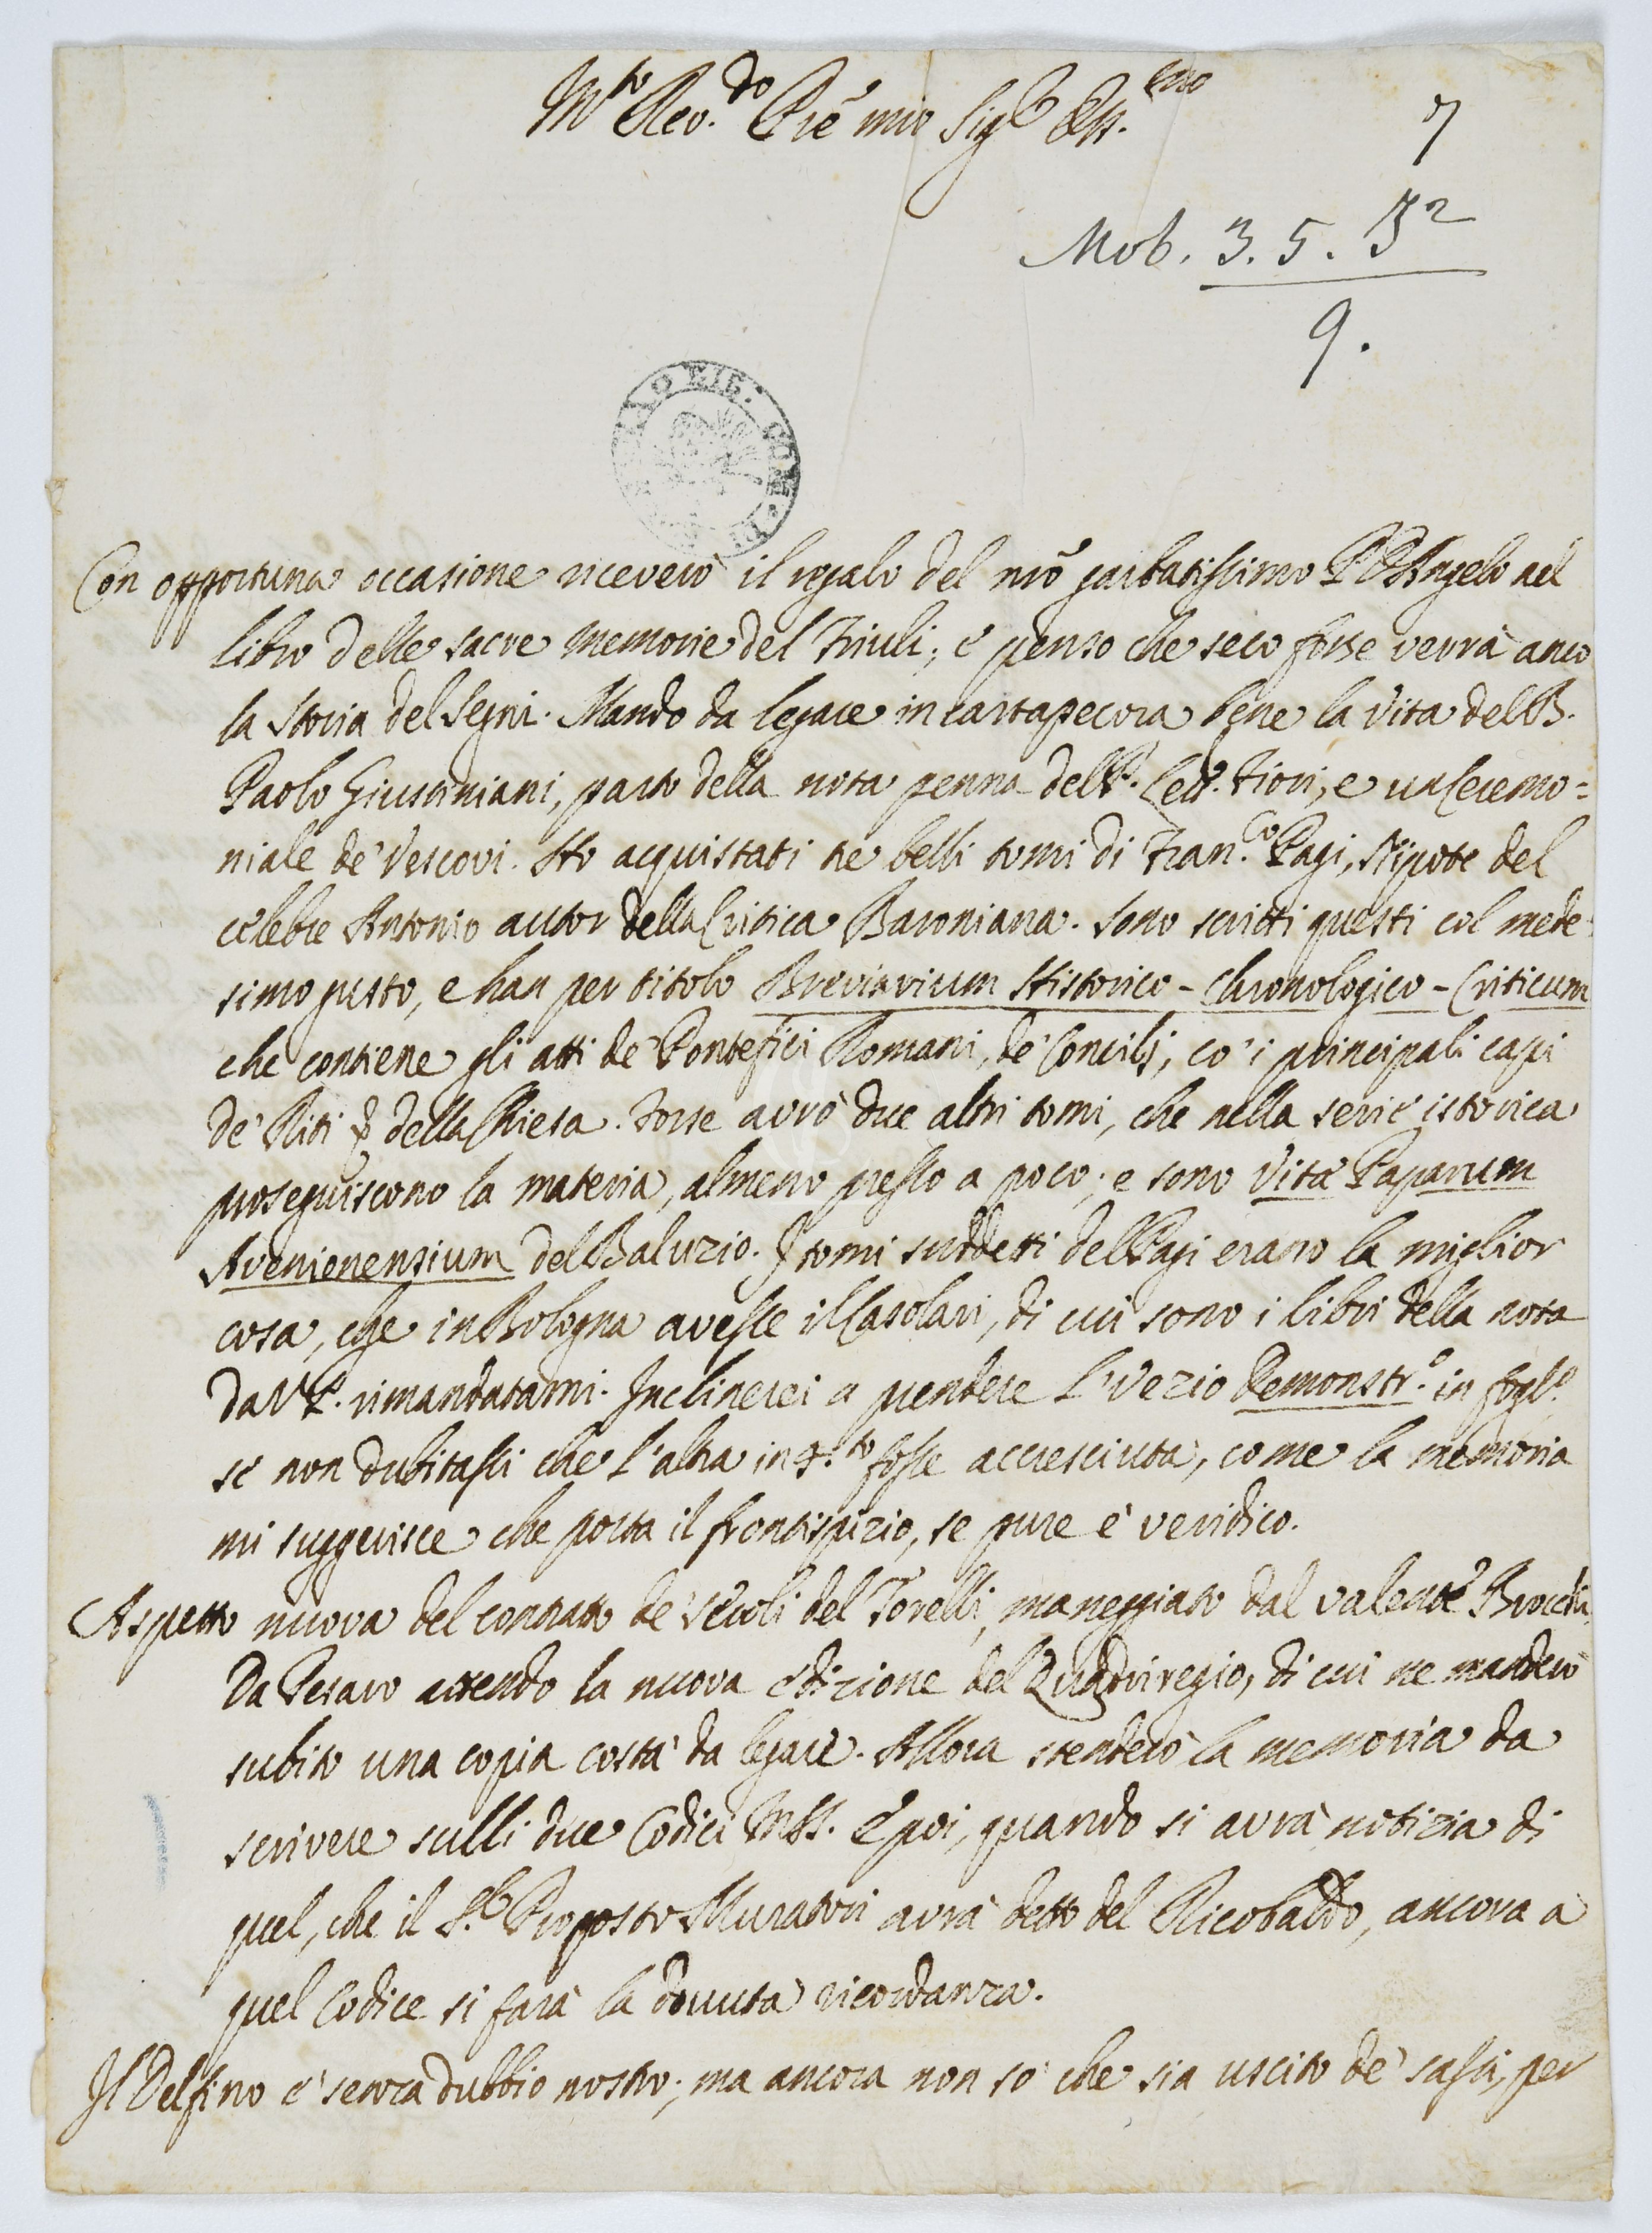 M.to Rev.do Prê mio Sig.r Oss.mo
7
Mob. 3. 5. 3²
9.
Con opportuna occasione riceverò il regalo del nrô garbatissimo P. D'Angelo nel
libro delle sacre memorie del Friuli; e penso che seco forse verrà anco
la storia del Segni. Mando da legare in cartapecora bene la Vita del B.
Paolo Giustiniani, parto della nota penna del P. Lett. Fiori, e un Ceremo=
niale de' Vescovi. Ho acquistati tre belli tomi di Fran.co Pagi, Nipote del
celebre Antonio autor della Critica Baroniana. Sono scritti questi col mede=
simo gusto, e han per titolo Breviarium Historico-Chronologico-Criticum
che contiene gli atti de' Pontefici Romani, de' Concilj, co' i principali capi
de' Riti & della Chiesa. Forse avrò due altri tomi, che nella serie istorica
proseguiscono la materia, almeno presso a poco; e sono Vitæ Paparum
Avenienensium del Baluzio. I tomi suddetti del Pagi erano la miglior
cosa, che in Bologna avesse il Casolari, di cui sono i libri della nota
da V.P. rimandatami. Inclinerei a prendere l'Uezio Demonstr.e in fogl.o
se non dubitassi che l'altra in 4.to fosse accresciuta, come la memoria
mi suggerisce che porta il frontispizio, se pure è veridico.
Aspetto nuova del contratto de' Secoli del Torelli, maneggiato dal valente Brocchi.
Da Pesaro attendo la nuova edizione del Quadriregio, di cui ne manderò
subito una copia costà da legare. Allora stenderò la memoria da
scrivere sulli due Codici MSS. E poi, quando si avrà notizia di
quel, che il S.r Proposto Muratori avrà detto del Ricobaldo, ancora a
quel Codice si farà la dovuta ricordanza.
Il Delfino è senza dubbio nostro; ma ancora non so che sia uscito de' sassi, per